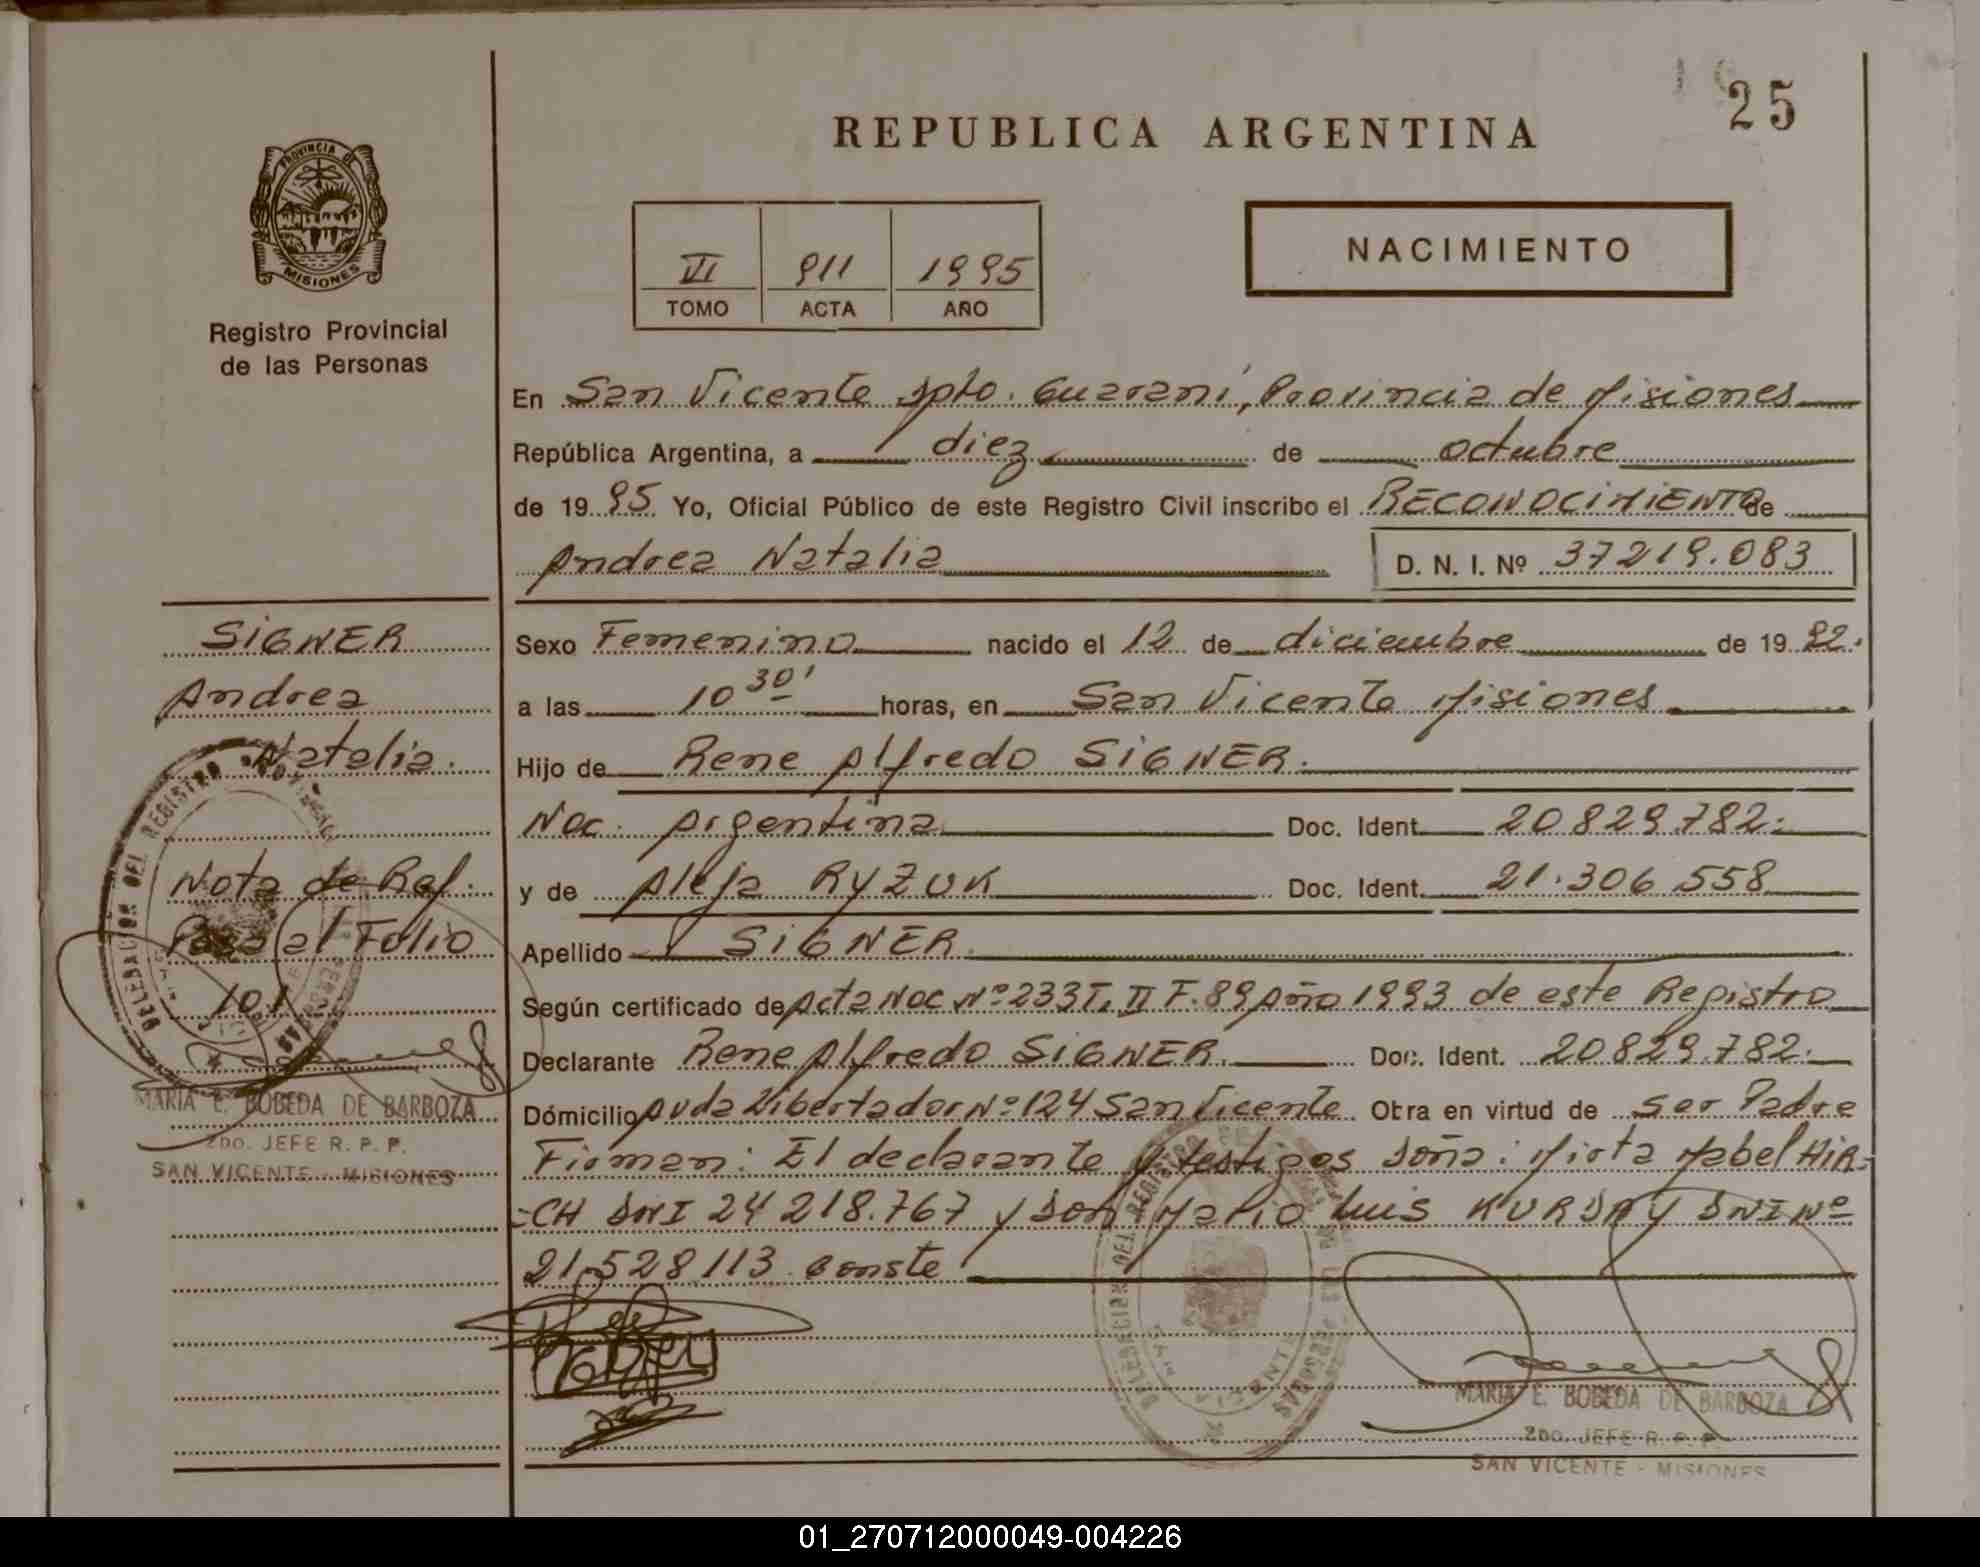 25
REPUBLICA ARGENTINA
PROVINCIA DE
MISIONES
Registro Provincial
de las Personas
VI 911 1995
TOMO ACTA AÑO
NACIMIENTO
En San Vicente Dpto. Guaraní, Provincia de Misiones
República Argentina, a diez de octubre
de 1995 Yo, Oficial Público de este Registro Civil inscribo el RECONOCIMIENTO de
Andrea Natalia D. N. I. Nº 37219.083
SIGNER
Andrea
Natalia.
Nota de Ref.
Pasa al Folio
101
MARIA E. BOBEDA DE BARBOZA
2DO. JEFE R. P. P.
SAN VICENTE - MISIONES
Sexo Femenino nacido el 12 de diciembre de 1992.
a las 10 30' horas, en San Vicente Misiones
Hijo de Rene Alfredo SIGNER.
Nac. Argentina Doc. Ident. 20829.782.
y de Aleja RYZUK Doc. Ident. 21.306 558
Apellido SIGNER.
Según certificado de Acta Nac. Nº 233 T. II F. 89 Año 1993 de este Registro
Declarante Rene Alfredo SIGNER. Doc. Ident. 20829.782.
Domicilio Avda Libertador Nº 124 San Vicente Obra en virtud de ser Padre
Firman: El declarante y testigos Doña: Mirta Mabel HIR-
-CH DNI 24 218.767 y Don Mario Luis KURDAY DNI Nº
21.528.113 conste
DELEGACION DEL REGISTRO PROVINCIAL DE LAS PERSONAS
SAN VICENTE
MARIA E. BOBEDA DE BARBOZA
2DO. JEFE R. P. P.
SAN VICENTE - MISIONES
01_270712000049-004226